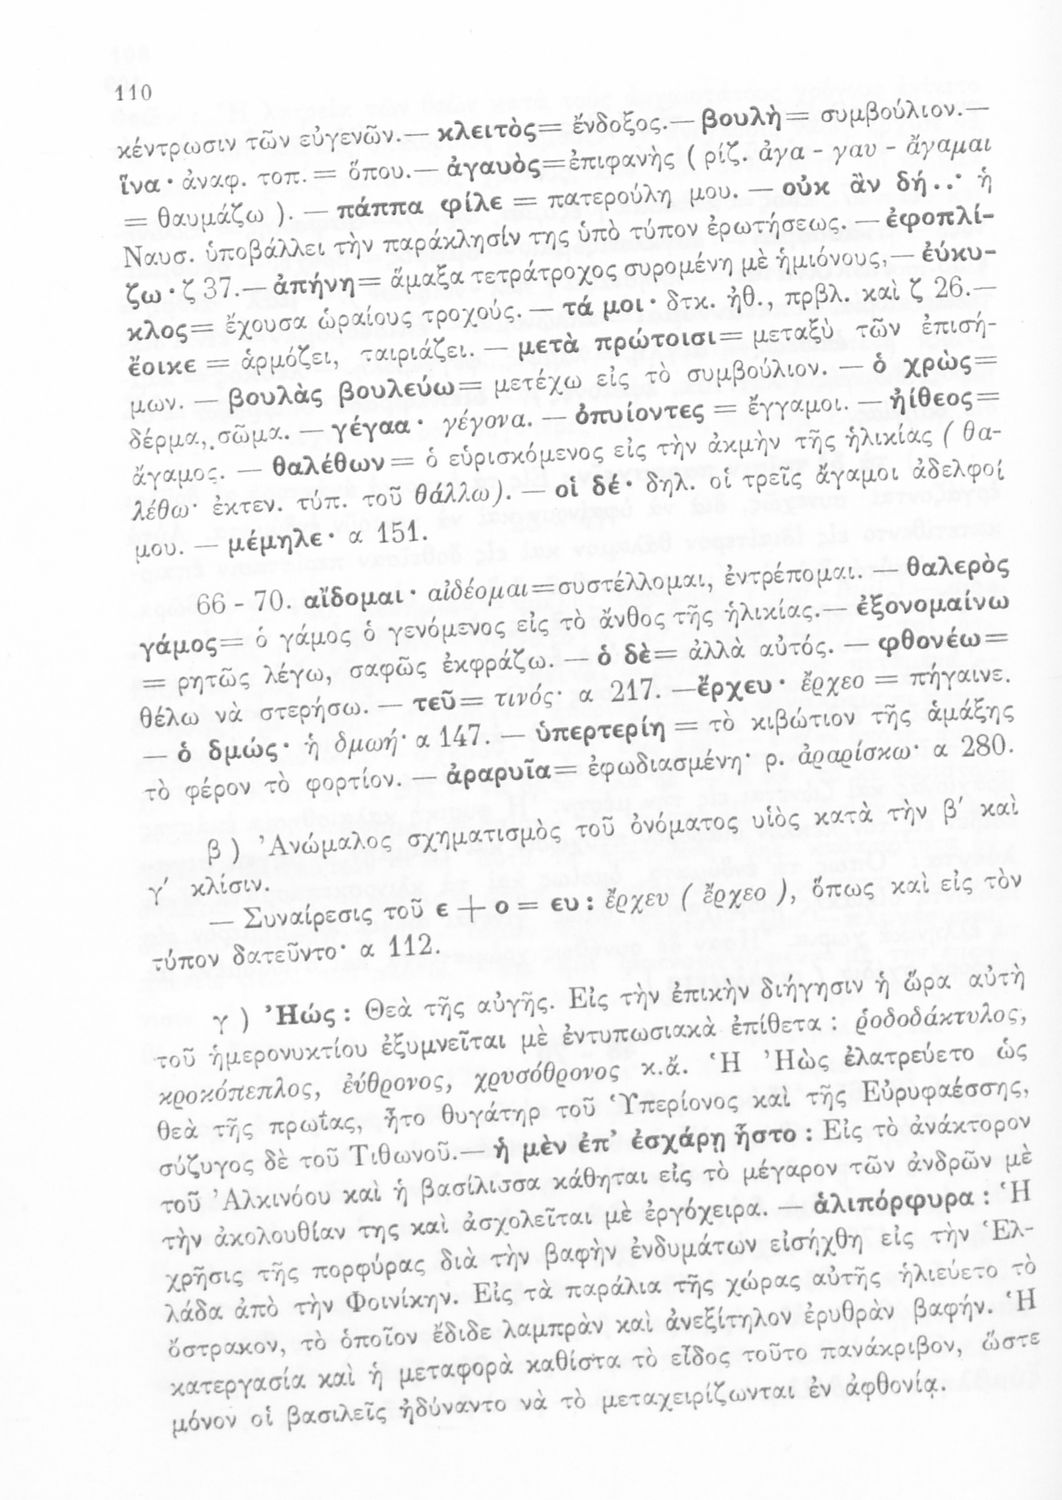 110
κέντρωσιν τῶν εὐγενῶν.— κλειτὸς= ἔνδοξος.— βουλὴ= συμβούλιον.—
ἵνα· ἀναφ. τοπ.= ὅπου.— ἀγαυὸς=ἐπιφανὴς ( ρίζ. ἀγα - γαυ - ἄγαμαι
= θαυμάζω ). — πάππα φίλε = πατερούλη μου. — οὐκ ἂν δή..· ἡ
Ναυσ. ὑποβάλλει τὴν παράκλησίν της ὑπὸ τύπον ἐρωτήσεως. — ἐφοπλί-
ζω· ζ 37.— ἀπήνη= ἅμαξα τετράτροχος συρομένη μὲ ἡμιόνους,— ἐύκυ-
κλος= ἔχουσα ὡραίους τροχούς. — τά μοι· δτκ. ἠθ., πρβλ. καὶ ζ 26.—
ἔοικε = ἁρμόζει, ταιριάζει. — μετὰ πρώτοισι= μεταξὺ τῶν ἐπισή-
μων. — βουλὰς βουλεύω= μετέχω εἰς τὸ συμβούλιον. — ὁ χρὼς=
δέρμα, σῶμα. — γέγαα· γέγονα. — ὀπυίοντες = ἔγγαμοι. — ἠίθεος=
ἄγαμος. — θαλέθων= ὁ εὑρισκόμενος εἰς τὴν ἀκμὴν τῆς ἡλικίας ( θα-
λέθω· ἐκτεν. τύπ. τοῦ θάλλω). — οἱ δέ· δηλ. οἱ τρεῖς ἄγαμοι ἀδελφοί
μου. — μέμηλε· α 151.
66 - 70. αἴδομαι· αἰδέομαι=συστέλλομαι, ἐντρέπομαι. — θαλερὸς
γάμος= ὁ γάμος ὁ γενόμενος εἰς τὸ ἄνθος τῆς ἡλικίας.— ἐξονομαίνω
= ρητῶς λέγω, σαφῶς ἐκφράζω. — ὁ δὲ= ἀλλὰ αὐτός. — φθονέω=
θέλω νὰ στερήσω. — τεῦ= τινός· α 217. —ἔρχευ· ἔρχεο = πήγαινε.
— ὁ δμώς· ἡ δμωή· α 147. — ὑπερτερίη = τὸ κιβώτιον τῆς ἁμάξης
τὸ φέρον τὸ φορτίον. — ἀραρυῖα= ἐφωδιασμένη· ρ. ἀραρίσκω· α 280.
β ) Ἀνώμαλος σχηματισμὸς τοῦ ὀνόματος υἱὸς κατὰ τὴν β΄ καὶ
γ΄ κλίσιν.
— Συναίρεσις τοῦ ε + ο = ευ : ἔρχευ ( ἔρχεο ), ὅπως καὶ εἰς τὸν
τύπον δατεῦντο· α 112.
γ ) Ἠώς : Θεὰ τῆς αὐγῆς. Εἰς τὴν ἐπικὴν διήγησιν ἡ ὥρα αὐτὴ
τοῦ ἡμερονυκτίου ἐξυμνεῖται μὲ ἐντυπωσιακὰ ἐπίθετα : ῥοδοδάκτυλος,
κροκόπεπλος, ἐύθρονος, χρυσόθρονος κ.ἄ. Ἡ Ἠὼς ἐλατρεύετο ὡς
θεὰ τῆς πρωΐας, ἦτο θυγάτηρ τοῦ Ὑπερίονος καὶ τῆς Εὐρυφαέσσης,
σύζυγος δὲ τοῦ Τιθωνοῦ.— ἡ μὲν ἐπ’ ἐσχάρῃ ἧστο : Εἰς τὸ ἀνάκτορον
τοῦ Ἀλκινόου καὶ ἡ βασίλισσα κάθηται εἰς τὸ μέγαρον τῶν ἀνδρῶν μὲ
τὴν ἀκολουθίαν της καὶ ἀσχολεῖται μὲ ἐργόχειρα. — ἁλιπόρφυρα : Ἡ
χρῆσις τῆς πορφύρας διὰ τὴν βαφὴν ἐνδυμάτων εἰσήχθη εἰς τὴν Ἑλ-
λάδα ἀπὸ τὴν Φοινίκην. Εἰς τὰ παράλια τῆς χώρας αὐτῆς ἡλιεύετο τὸ
ὄστρακον, τὸ ὁποῖον ἔδιδε λαμπρὰν καὶ ἀνεξίτηλον ἐρυθρὰν βαφήν. Ἡ
κατεργασία καὶ ἡ μεταφορὰ καθίστα τὸ εἶδος τοῦτο πανάκριβον, ὥστε
μόνον οἱ βασιλεῖς ἠδύναντο νὰ τὸ μεταχειρίζωνται ἐν ἀφθονίᾳ.